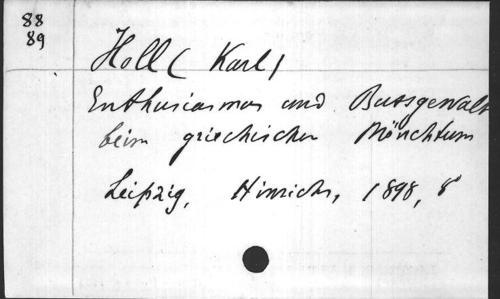 88
89
Holl (Karl)
Enthusiasmus und Bussgewalt
beim griechischen Mönchtum
Leipzig, Hinrichs, 1898, 8°